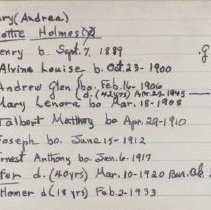 ry (Andrea)
ottie Holmes (2)
enry b. Sept. 7, 1889
Alvina Louise bo. Oct. 23-1900
Andrew Glen bo. Feb. 16-1906
d. (42yrs) Apr. 22-1945
Mary Lenora bo Mar. 18-1908
Talbert Matthey bo Apr 22-1910
Joseph bo. June 15-1912
rnest Anthony bo. Jan. 6-1917
d. (40yrs) Mar. 10-1920
Homer d (18 yrs) Feb. 2-1933